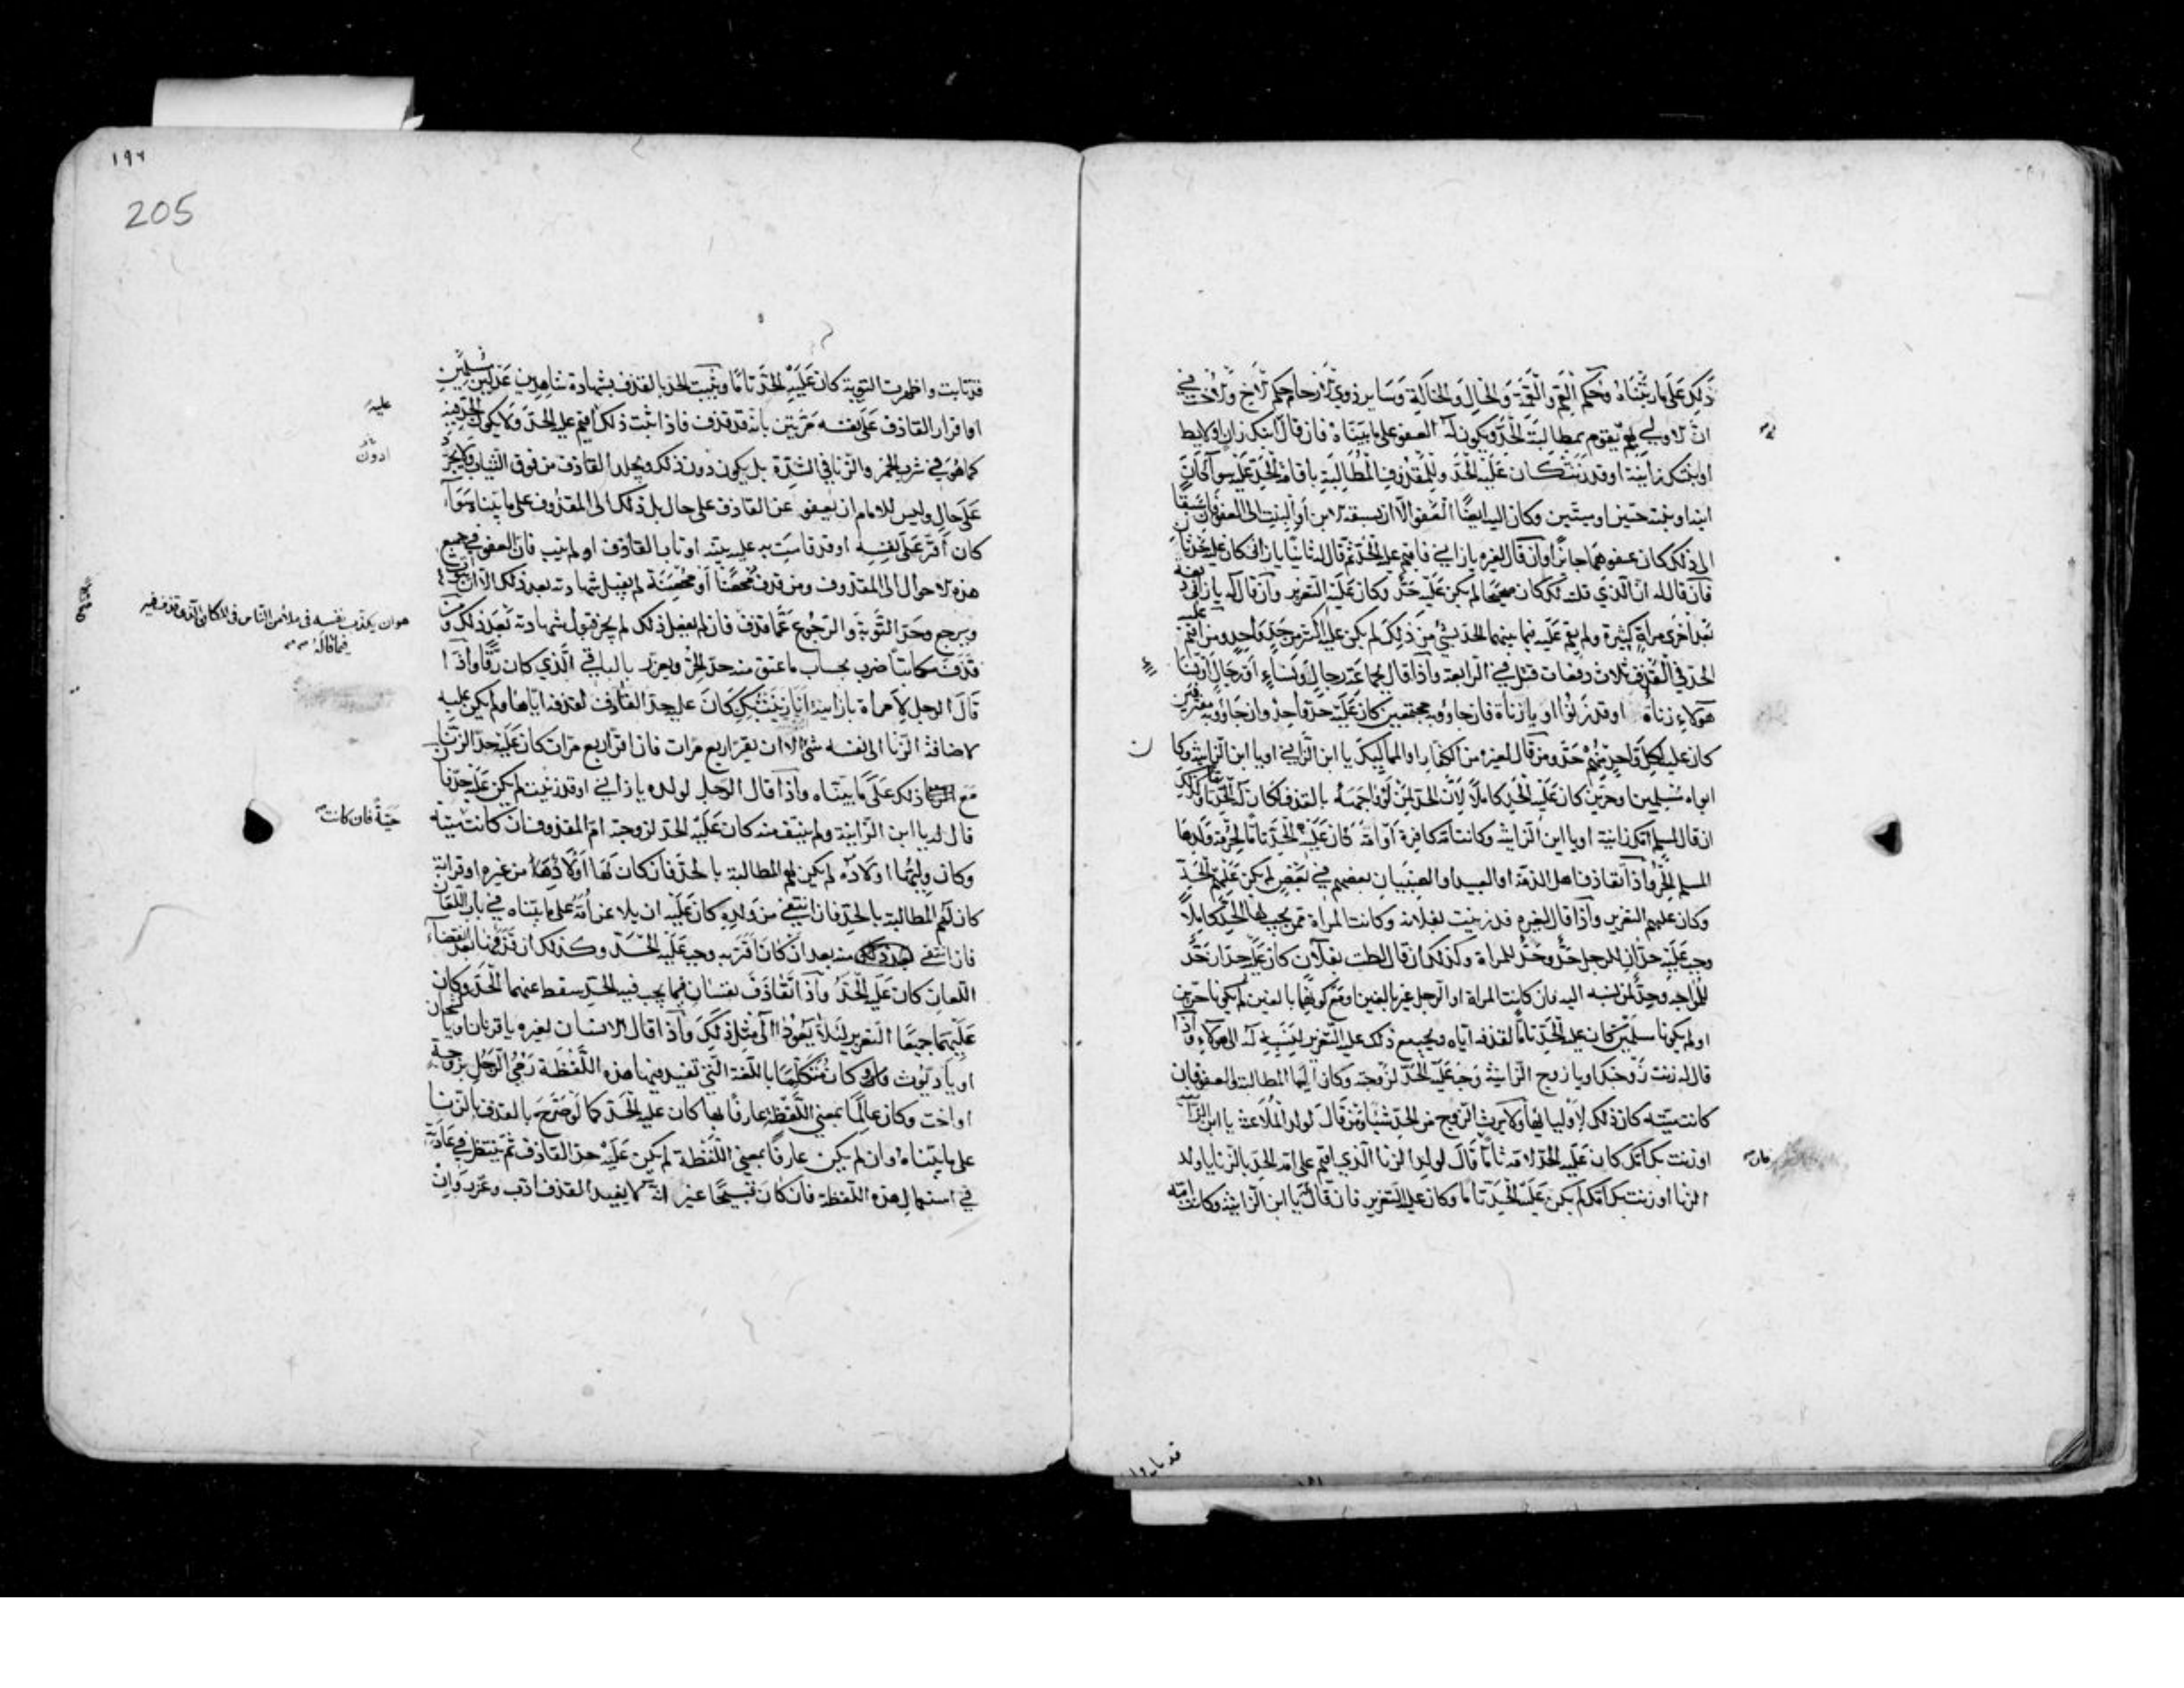 ذلك على ما رتبناه وحكم العم والعمة والخال والخالة وساير ذوي الارحام حكم الاخ والاخت في
ان الاولى بهم يقوم بمطالبة الحد ويكون له العفو على ما بيناه فان قال ابنك زان او لايط
او بنتك زانية او قد زنت كان عليه الحد وللمقذوف المطالبة باقامة الحد عليه سوآ كان
ابنه او بنته حيين او ميتين وكان اليه ايضا العفو الا ان يسبقه الابن او البنت الى العفو فان سبقا
الى ذلك كان عفوهما جائزا وان قال لغيره يا زاني فاقيم عليه الحد ثم قال له ثانيا يا زاني كان عليه حد ثان
فان قال له ان الذي قلت لك كان صحيحا لم يكن عليه حد وكان عليه التعزير وان قال له يا زاني دفعة
بعد اخرى مرات كثيرة ولم يقم عليه فيما بينهما الحد بشي من ذلك لم يكن عليه اكثر من حد واحد ومن اقيم عليه
الحد في القذف ثلاث دفعات قتل في الرابعة واذا قال لجماعة رجال ونساء او رجال او نسا
هولاء زناة او قد زنوا او يا زناة فان جاؤوا به مجتمعين كان عليه حد واحد وان جاؤوا به متفرقين
كان عليه لكل واحد منهم حد ومن قال لغيره من الكفار او المماليك يا ابن الزاني او يا ابن الزانية وكا
ن
ابواه مسلمين او حرين كان عليه الحد كاملا لان الحد لمن لو واجهه بالقذف لكان له الحد تاما وكذلك
ان قال لمسلم امك زانية او يا ابن الزانية وكانت امه كافرة او امة كان عليه الحد تاما لحرمة ولدها
المسلم الحر واذا تقاذف اهل الذمة او العبيد او الصبيان بعضهم في بعض لم يكن عليهم الحد
وكان عليهم التعزير واذا قال لغيره قد زنيت بفلانة وكانت المراة ممن يجب لها الحد كاملا
وجب عليه حدان للرجل حد وحد للمراة وكذلك ان قال لطت بفلان كان عليه حدان حد
للمواجه وحد لمن نسبه اليه فان كانت المراة او الرجل غير بالغين او مع كونهما بالغين لم يكونا حرين
او لم يكونا مسلمين كان عليه الحد تاما لقذفه اياه ويجب مع ذلك عليه التعزير لنسبته له الى هولاء واذا
قال له زنت زوجتك او يا زوج الزانية وجب عليه الحد لزوجته وكان اليها المطالبة والعفو فان
كانت ميتة كان ذلك لاوليائها ولا يرث الزوج من الحد شيئا ومن قال لولد الملاعنة يا ابن الزانية
او زنت بك امك كان عليه الحد لامه تاما قال لولد الزنا الذي اقيم على امه الحد بالزنا يا ولد
فان
الزنا او زنت بك امك لم يكن عليه الحد تاما وكان عليه التعزير فان قال له يا ابن الزانية وكانت امه
١٩٦
205
قد تابت واظهرت التوبة كان عليه الحد تاما ويثبت الحد بالقذف بشهادة شاهدين عدلين مسلمين
او اقرار القاذف على نفسه مرتين بانه قد قذف فاذا ثبت ذلك اقيم عليه الحد ولا يكون الحد فيه
عليه
كما هو في شرب الخمر والزنا في الشدة بل يكون دون ذلك ويجلد القاذف من فوق الثياب ولا يجرد
ادون
على حال وليس للامام ان يعفو عن القاذف على حال بل ذلك الى المقذوف على ما بيناه سوآء
كان اقر على نفسه او قد قامت به عليه بينه او تاب القاذف او لم يتب فان العفو في جميع
هذه الاحوال الى المقذوف ومن قذف محصنا او محصنة لم يقبل شهادته بعد ذلك الا ان يتوب
ويرجع وحد التوبة والرجوع عما قذف فان لم يفعل ذلك لم يجز قبول شهادته بعد ذلك ومن
هو ان يكذب نفسه في ملا من الناس في المكان الذي قذف فيه
فيما قاله
قذف مكاتبا ضرب بحساب ما عتق منه حد الحر ويعزر بالباقي الذي كان رقا واذا
قال الرجل لامراة يا زانية انا زنيت بك كان عليه حد القاذف لقذفه اياها ولم يكن عليه
لاضافة الزنا الى نفسه شي الا ان يقر اربع مرات فان اقر اربع مرات كان عليه حد الزنا
مع ذلك على ما بيناه واذا قال الرجل لولده يا زاني او قد زنيت لم يكن عليه حد فا
ن
قال له يا ابن الزانية ولم ينتف منه كان عليه الحد لزوجته ام المقذوف فان كانت ميتة
حية فان كانت
وكان وليها اولاده لم يكن لهم المطالبة بالحد فان كان لها اولاد من غيره او قرابة
كان لهم المطالبة بالحد فان انتفى من ولده كان عليه ان يلاعن امه على ما بيناه في باب اللعان
فان انتفى منه بعد ان كان اقر به وجب عليه الحد وكذلك ان قذفها بعد انقضاء
اللعان كان عليه الحد واذا تقاذف نفسان فيما يجب فيه الحد سقط عنهما الحد وكان
عليهما جميعا التعزير ليلا يعودا الى مثل ذلك واذا قال الانسان لغيره يا قرنان او يا كشخان
او يا ديوث وكان متكلما باللغة التي تفيد فيها هذه اللفظة رمي الرجل بزوجته
او اخت وكان عالما بمعني اللفظة عارفا بها كان عليه الحد كما لو صرح بالقذف بالزنا
على ما بيناه وان لم يكن عارفا بمعني اللفظة لم يكن عليه حد القاذف ثم ينظر في عادته
في استعمال هذه اللفظة فان كان قبيحا غير انه لا يفيد القذف ادب وعزر وان